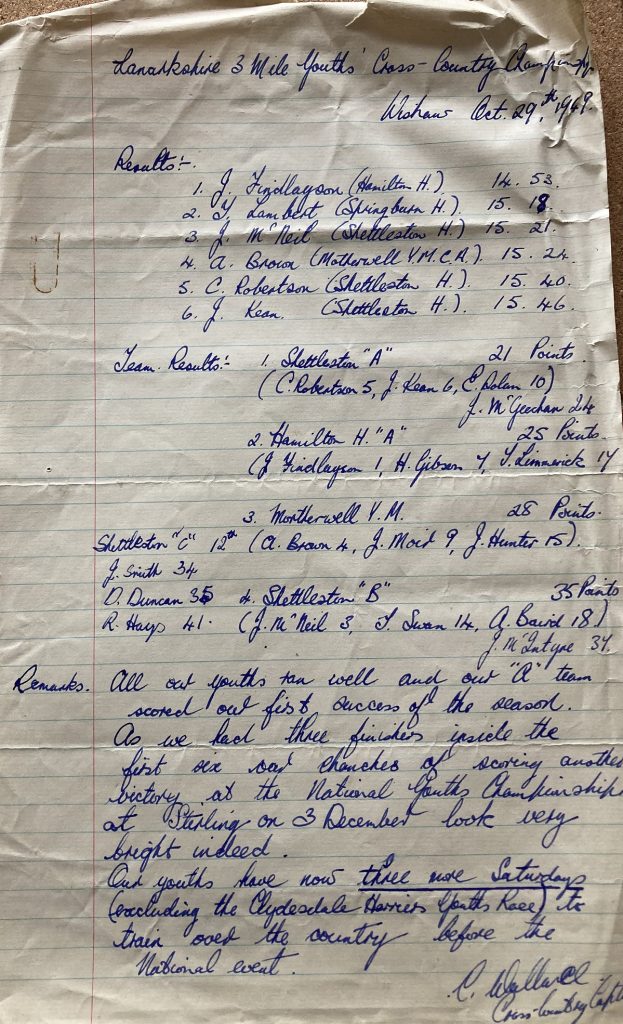 Lanarkshire 3 Mile Youths' Cross-Country Championship.
Wishaw Oct. 29th, 1949.
Results:-
1. J. Findlayson (Hamilton H.) 14. 53.
2. T. Lambert (Springburn H.). 15. 18.
3. J. McNeil (Shettleston H.) 15. 21.
4. A. Brown (Motherwell Y.M.C.A.). 15. 24.
5. C. Robertson (Shettleston H.). 15. 40.
6. J. Kean. (Shettleston H.). 15. 46.
Team Results:- 1. Shettleston "A" 21 Points.
(C. Robertson 5, J. Kean 6, E. Dolan 10)
J. McGeechan 24
2. Hamilton H. "A" 25 Points.
(J Findlayson 1, H. Gibson 7, T. Limmerick 17
3. Mortherwell Y.M. 28 Points.
Shettleston "C" 12th (A. Brown 4, J. Moir 9, J. Hunter 15).
J. Smith 34
D. Duncan 35 4. Shettleston "B" 35 Points
R. Hays 41. (J. McNeil 3, T. Swan 14, A. Baird 18)
J. McIntyre 37.
Remarks. All our youths ran well and our "A" team
scored our first success of the season.
As we had three finishers inside the
first six our chanches of scoring another
victory at the National Youths Championship
at Stirling on 3 December look very
bright indeed.
Our youths have now three more Saturdays
(excluding the Clydesdale Harriers Youths Race) to
train over the country before the
National event.
C. Wallace
Cross-Country Capt